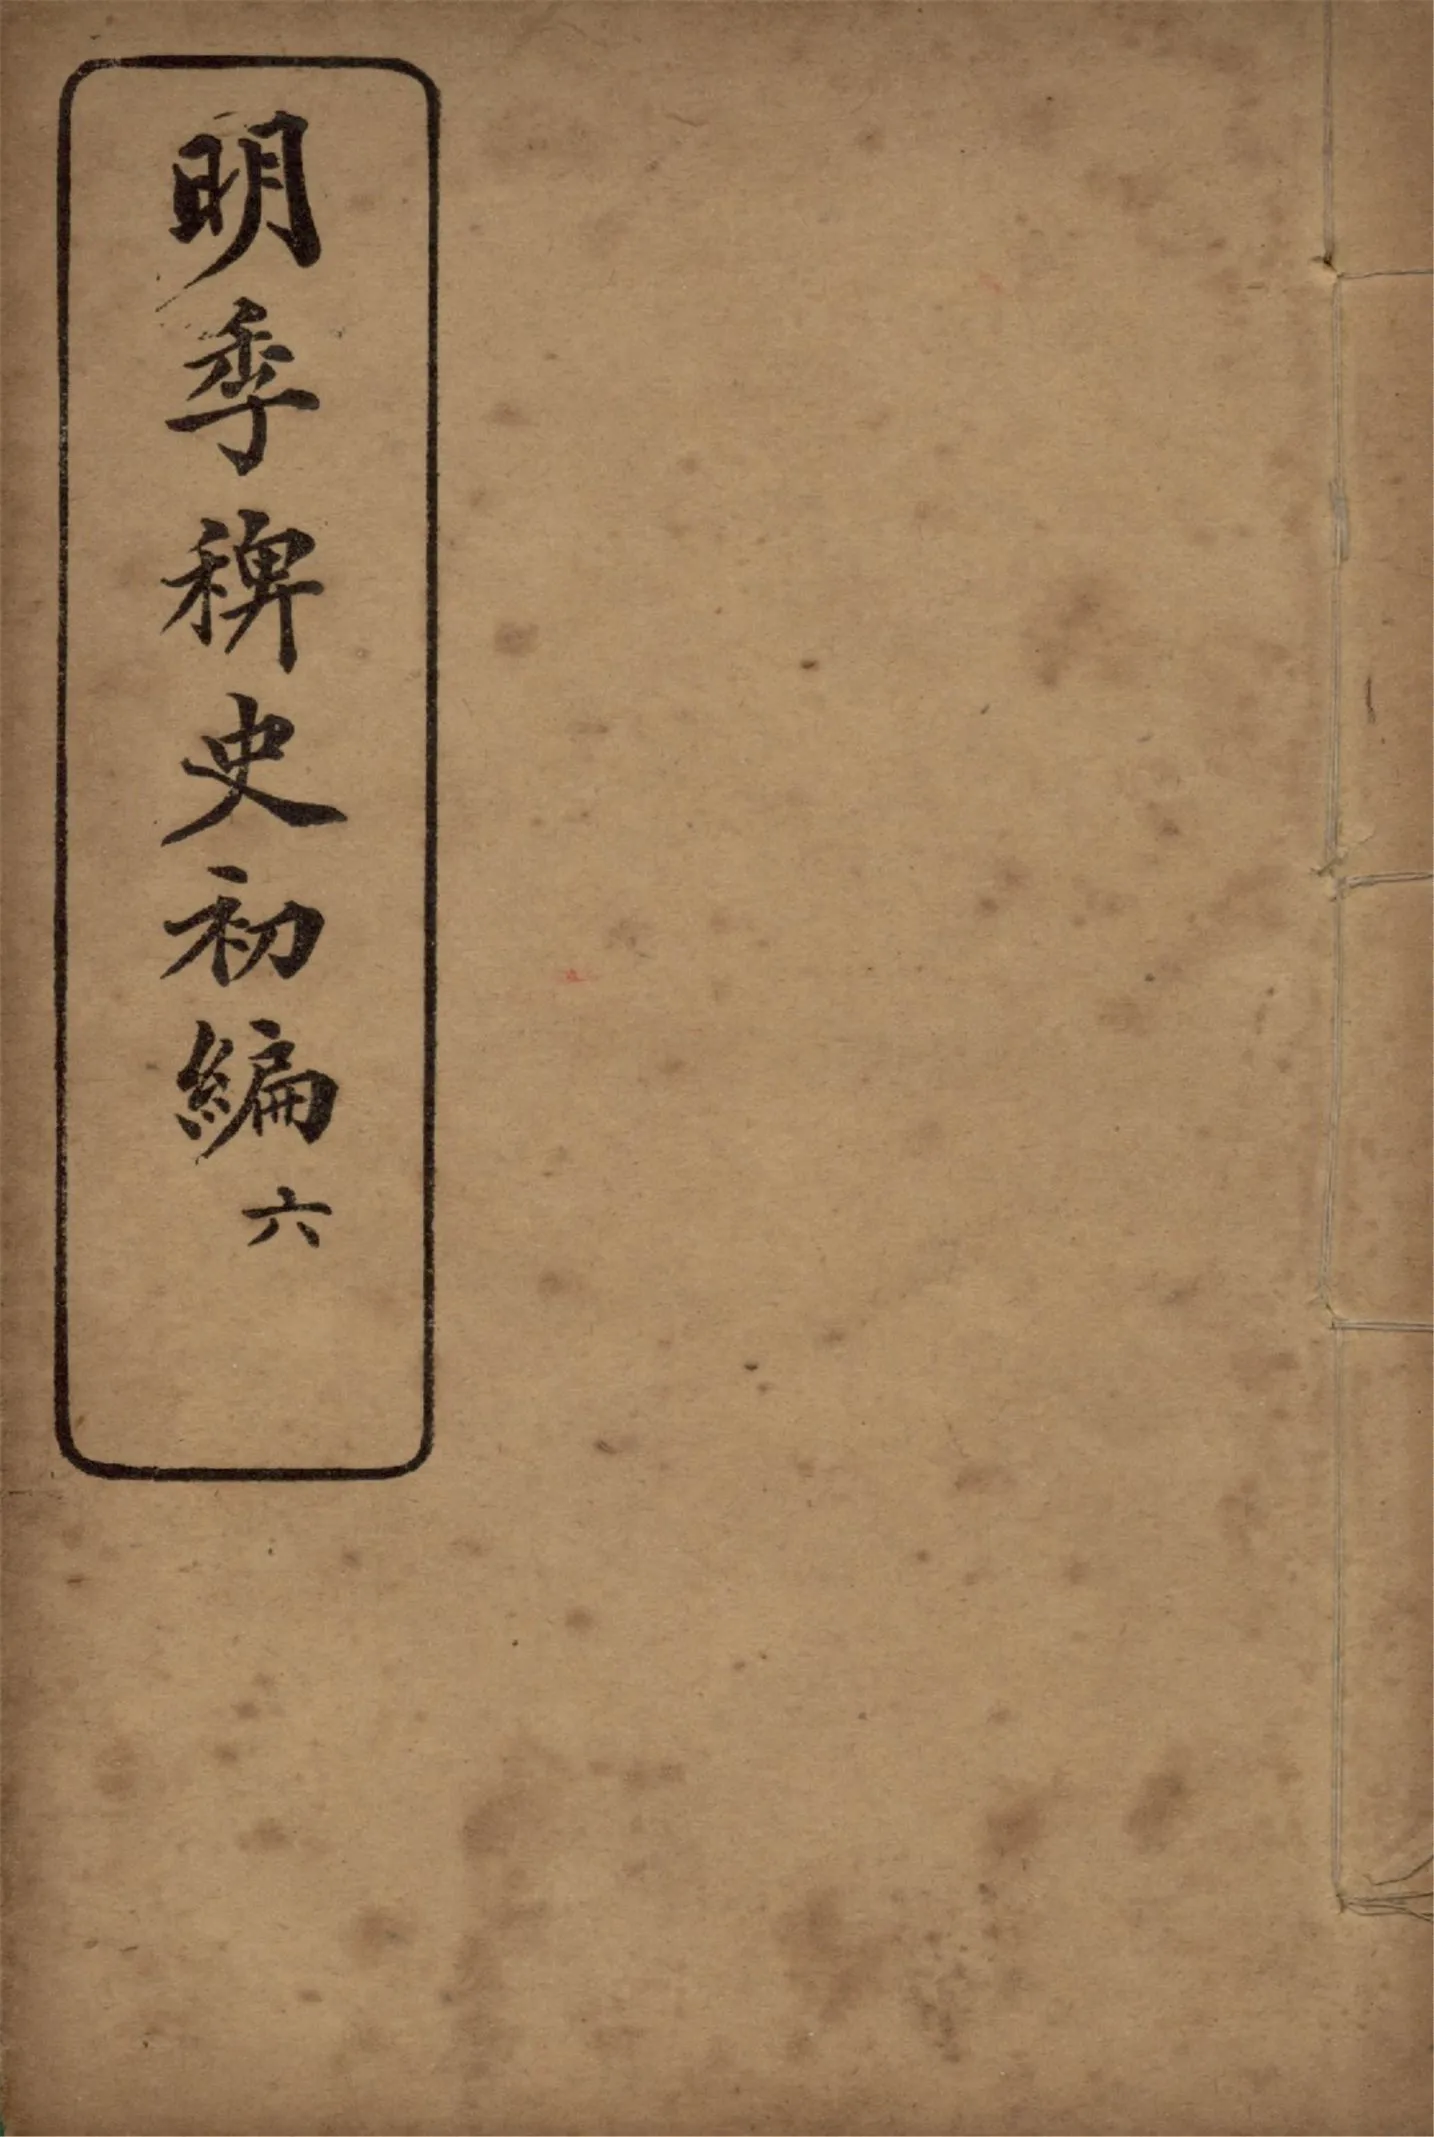 明季稗史初編 六